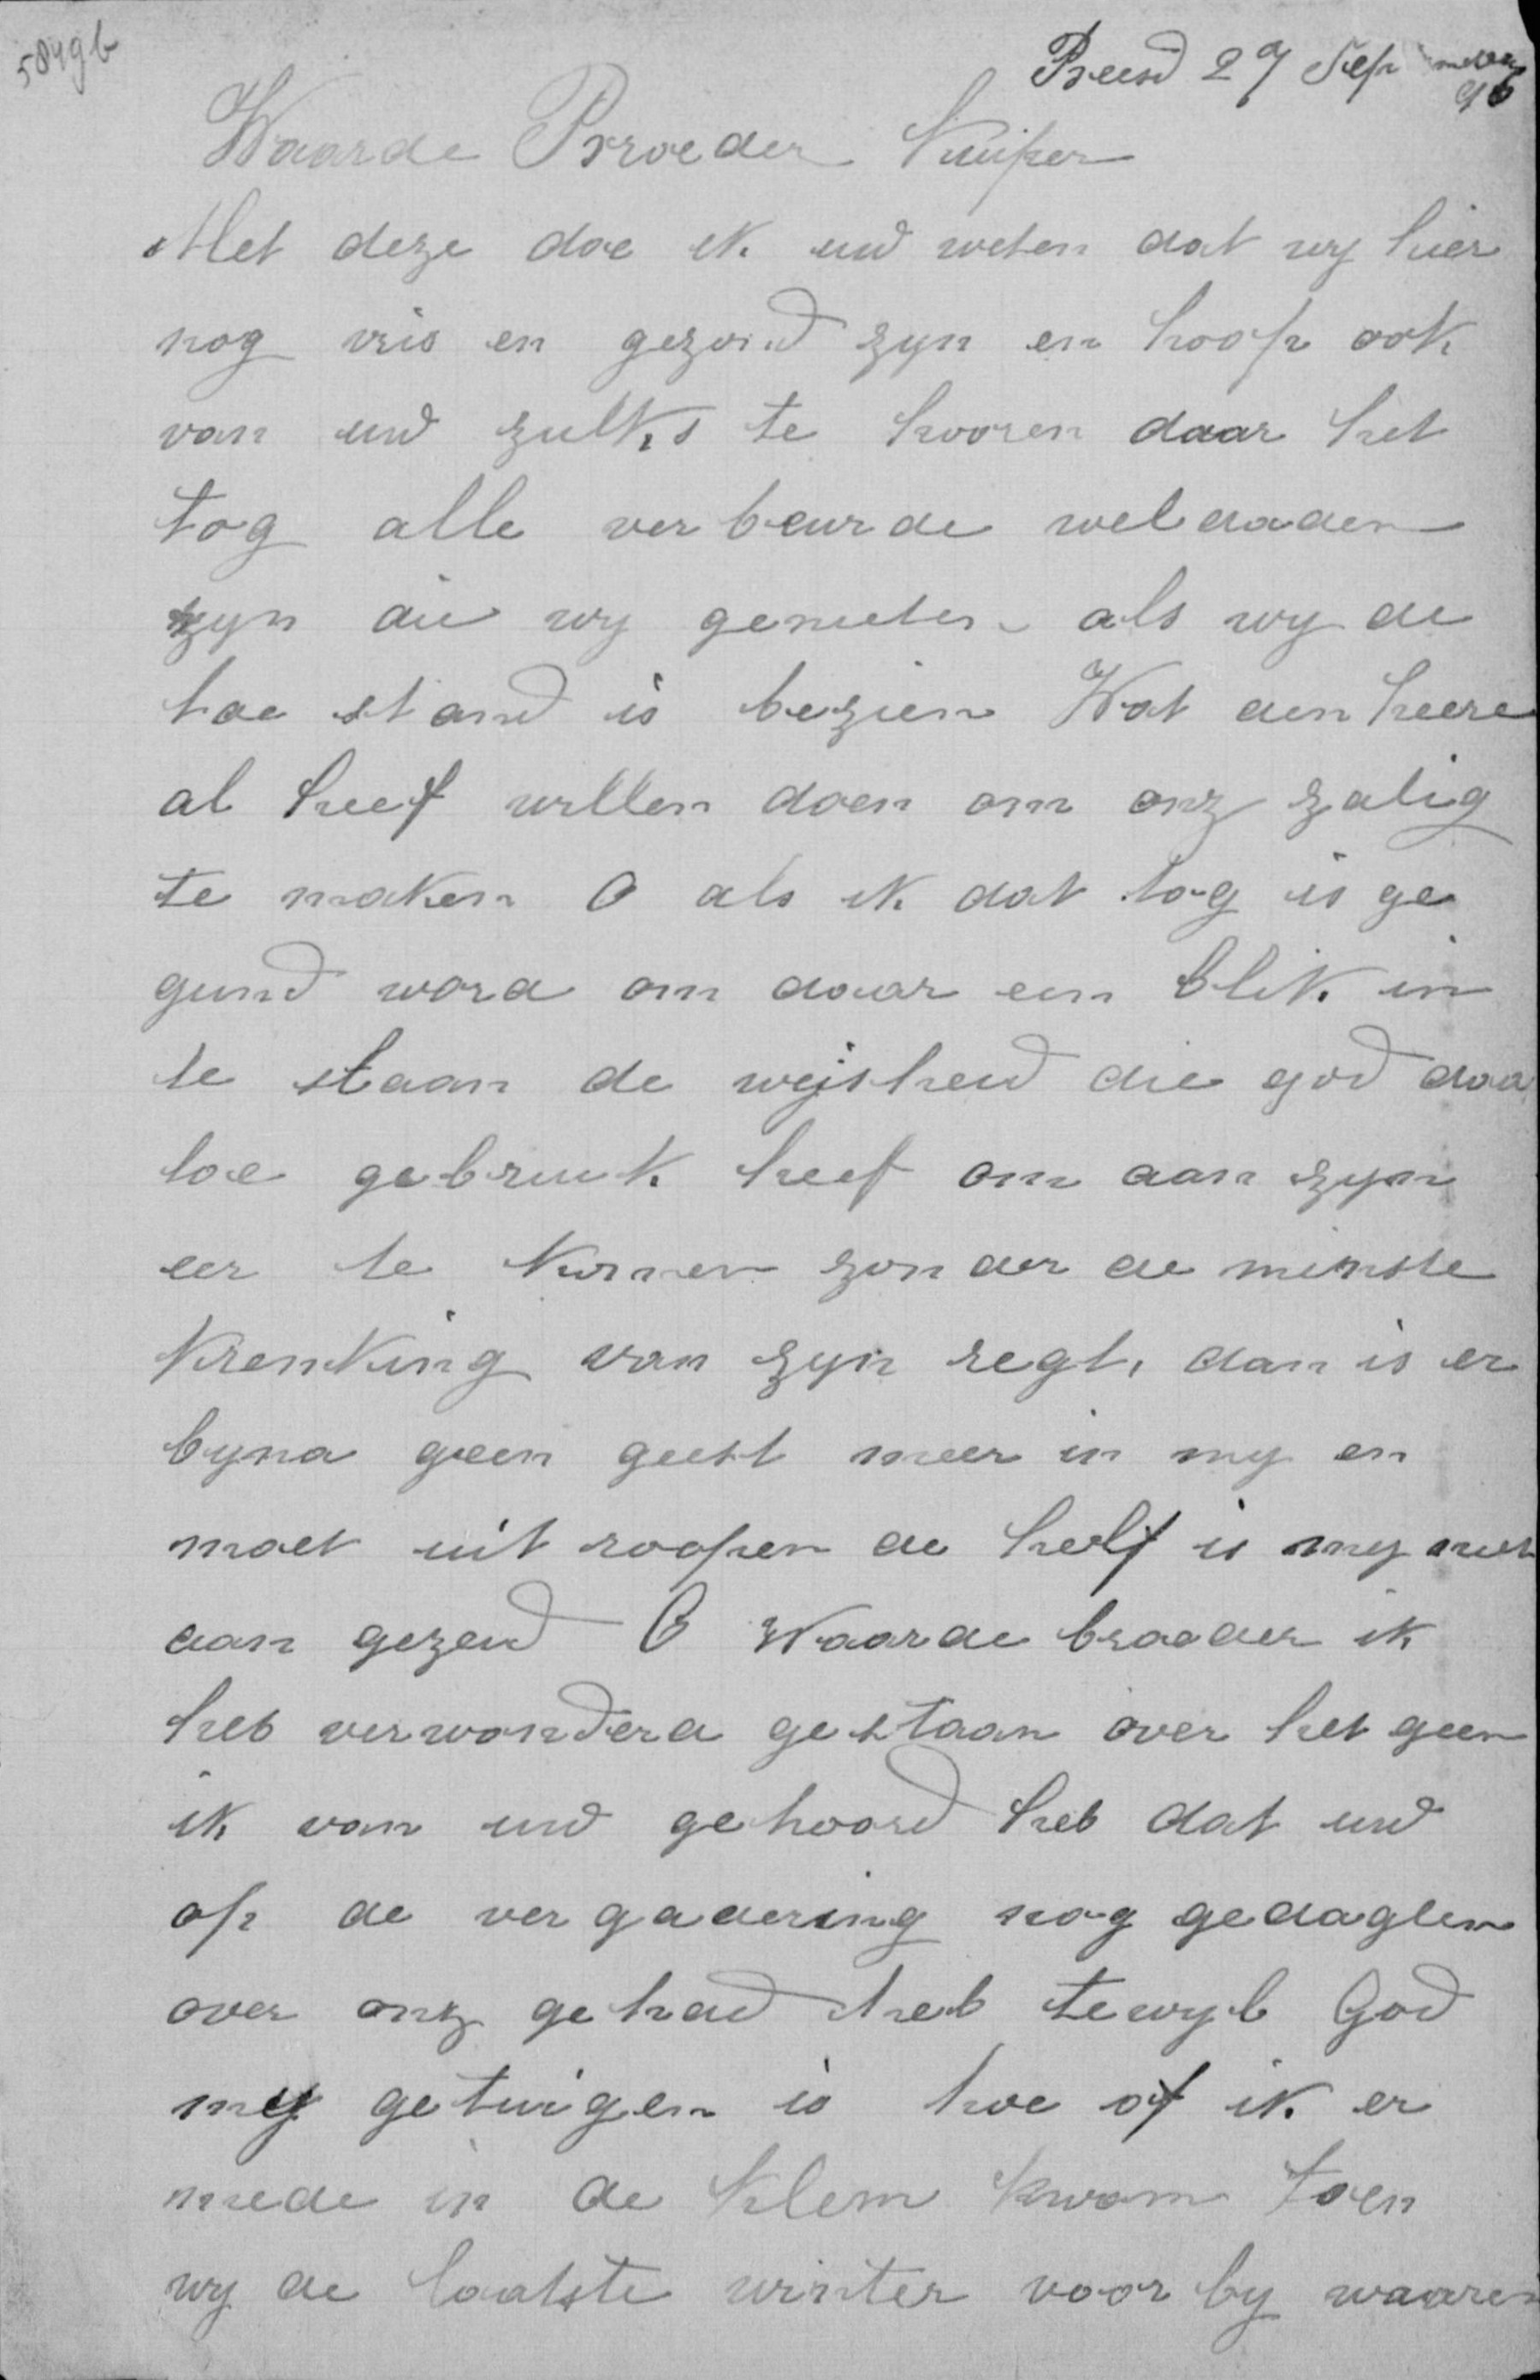 5849b
Beesd 29 September
96
Waarde Broeder Kuiper
Met deze doe ik uw weten dat wy hier
nog vris en gezond zyn en hoop ook
van uw zulks te hooren daar het
tog alle ver beurde weldaaden
zyn die wy genieten als wy de
toe stand is bezien Wat den heere
al heef willen doen om onz zalig
te maken O als ik dat tog is ge
gund word om daar een blik in
te slaan de wijsheid die god daa
toe gebruik heef om aan zyn
eer te komen zonder de minste
krenking van zyn regt, dan is er
byna geen geest meer in my en
moet uit roopen de helf is my niet
aan gezeid O Waarde broeder ik
heb verwonderd gestaan over het geen
ik van uw gehoord heb dat uw
op de vergadering nog gedagten
over onz gehad heb tewyl God
my getuigen is hoe of ik er
mede in de klem kwam toen
wy de laatste winter voor by waaren